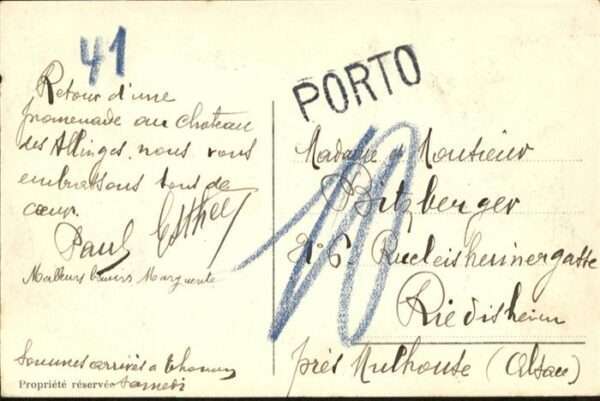 41
PORTO
Retour d'une
promenade au chateau
des Allinges, nous vous
embrassons tous de
coeur.
Paul Esther
Meilleurs baisers Marguerite
Sommes arrivés a Thonon
samedi
Propriété réservée
Madame et Monsieur
Bitzberger
Rudeisheimergatte
Riedisheim
près Mulhouse (Alsace)
10